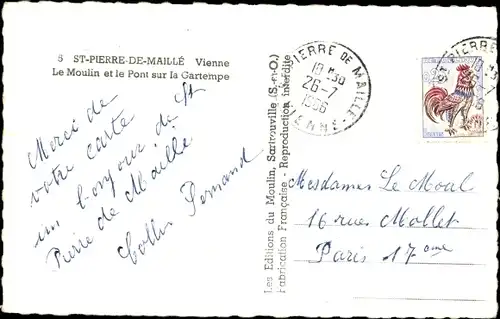 5 ST-PIERRE-DE-MAILLÉ Vienne
Le Moulin et le Pont sur la Gartempe
Merci de
votre carte
un bonjour de St
Pierre de Maillé
Collin Fernand
Les Editions du Moulin, Sartrouville (S.-et-O.)
Fabrication Française - Reproduction interdite
PIERRE DE MAILLÉ
10 H 30
26-7
1966
Mesdames Le Moul
16 rues Mollet
Paris 17eme